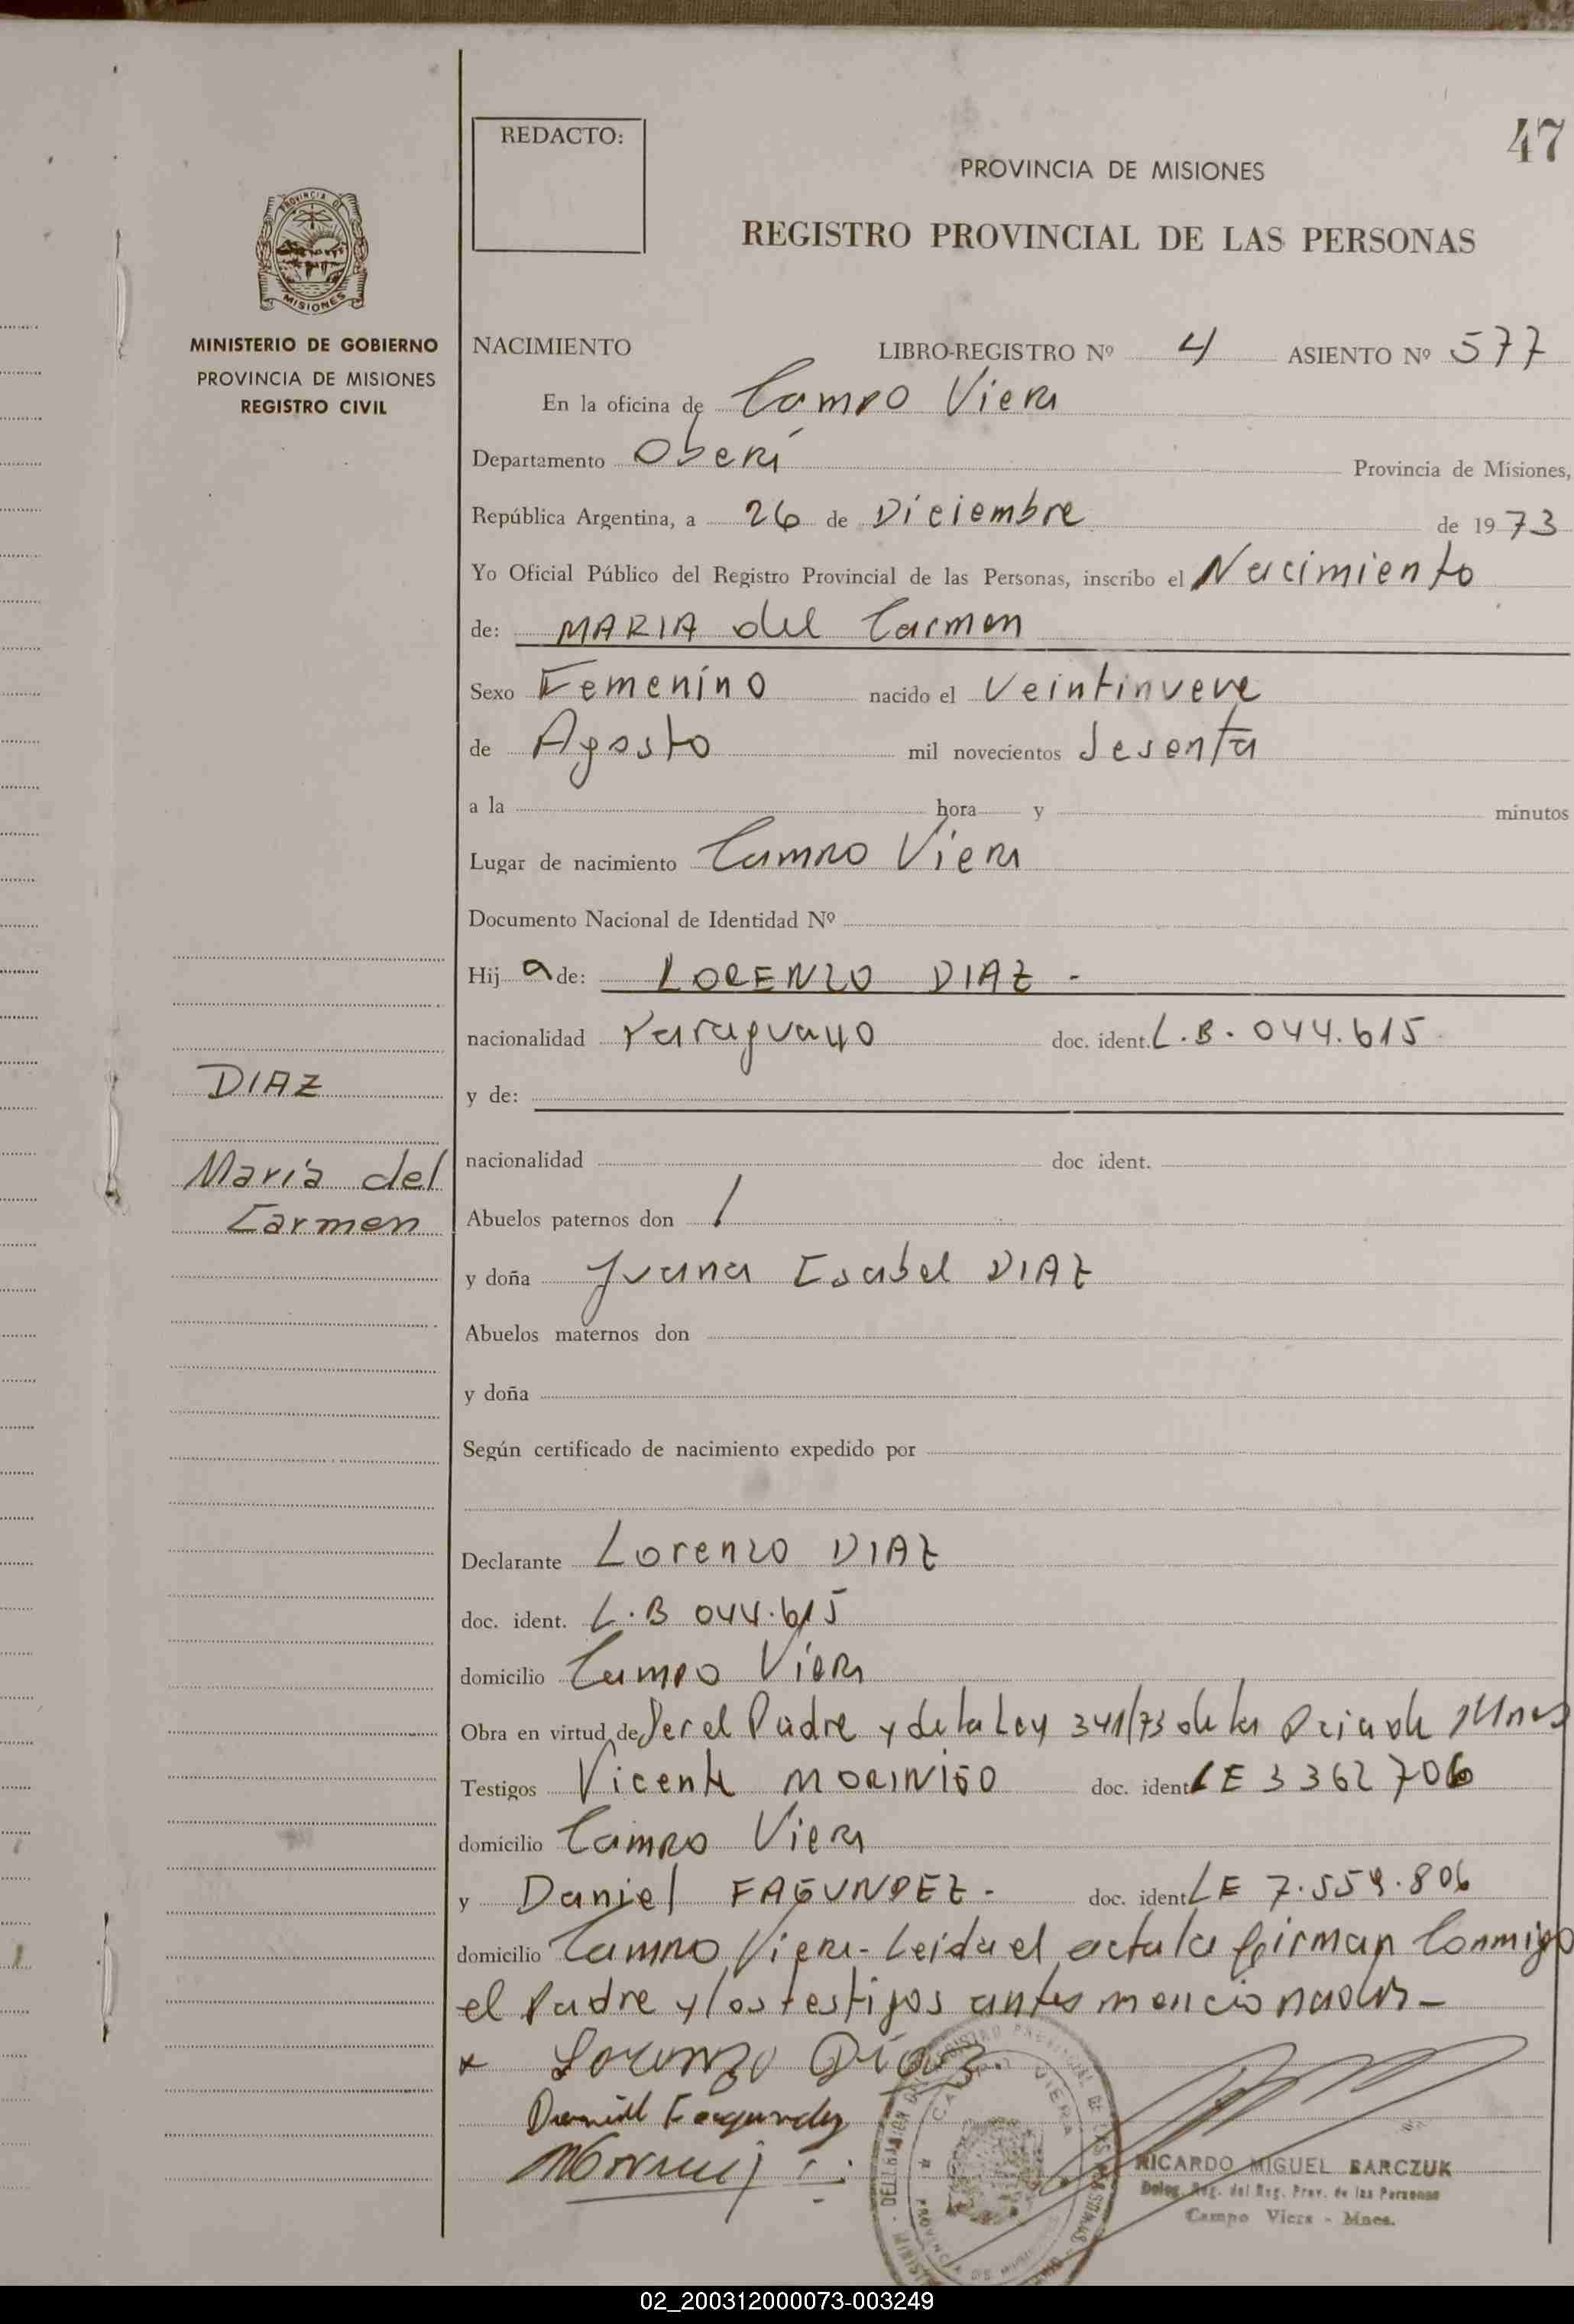 47
REDACTO:
PROVINCIA DE MISIONES
REGISTRO PROVINCIAL DE LAS PERSONAS
PROVINCIA DE
MISIONES
MINISTERIO DE GOBIERNO
PROVINCIA DE MISIONES
REGISTRO CIVIL
NACIMIENTO LIBRO-REGISTRO Nº 4 ASIENTO Nº 577
En la oficina de Campo Viera
Departamento Oberá Provincia de Misiones,
República Argentina, a 26 de Diciembre de 1973
Yo Oficial Público del Registro Provincial de las Personas, inscribo el Nacimiento
de: MARIA del Carmen
Sexo Femenino nacido el Veintinueve
de Agosto mil novecientos Sesenta
a la hora y minutos
Lugar de nacimiento Campo Viera
Documento Nacional de Identidad Nº
Hij a de: LORENZO DIAZ -
nacionalidad Paraguayo doc. ident. L.B. 044.615
y de:
nacionalidad doc ident.
Abuelos paternos don /
y doña Juana Isabel DIAZ
Abuelos maternos don
y doña
Según certificado de nacimiento expedido por
DIAZ
Maria del
Carmen
Declarante Lorenzo DIAZ
doc. ident. L.B 044.615
domicilio Campo Viera
Obra en virtud de Ser el Padre y de la Ley 341/73 de la Pcia de Mnes
Testigos Vicente MORINIGO doc. ident LE 3362706
domicilio Campo Viera
y Daniel FAGUNDEZ - doc. ident LE 7.559.806
domicilio Campo Viera - Leida el acta la firman Conmigo
el Padre y los testigos antes mencionados -
x Lorenzo Diaz.
Daniel Fagundez
RICARDO MIGUEL BARCZUK
Deleg. Reg. del Reg. Prov. de las Personas
Campo Viera - Mnes.
02_200312000073-003249